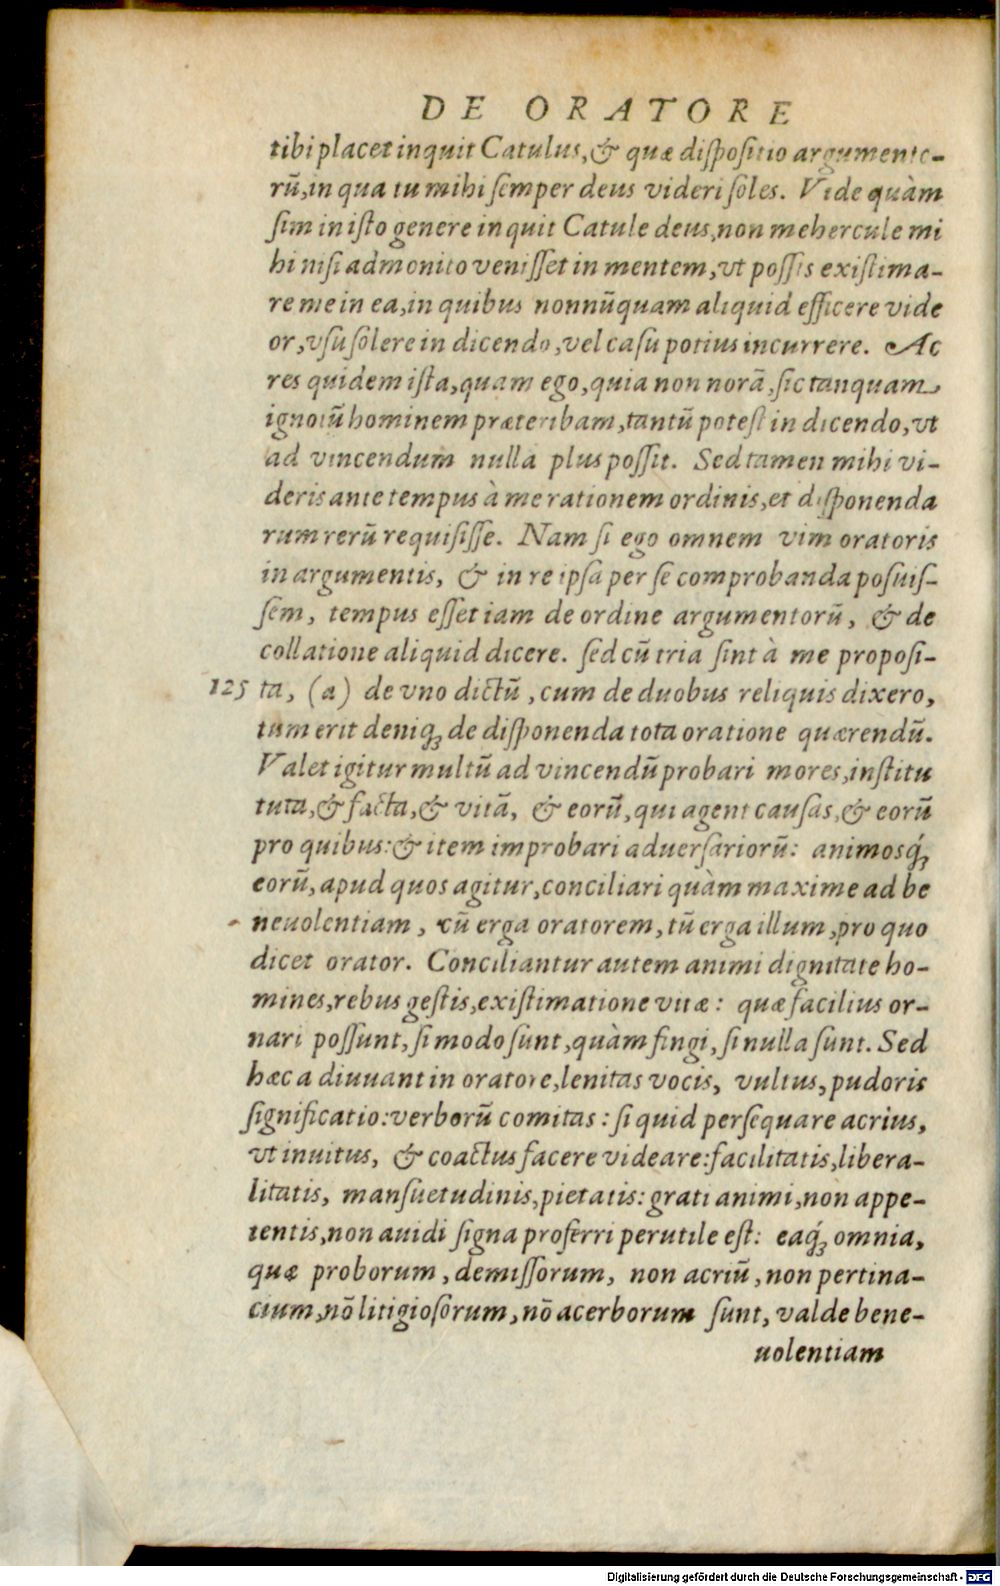 DE ORATORE
tibi placet inquit Catulus, & quæ dispositio argumento-
rū, in qua tu mihi semper deus videri soles. Vide quàm
sim in isto genere inquit Catule deus, non mehercule mi
hi nisi admonito venisset in mentem, vt possis existima-
re me in ea, in quibus nonnūquam aliquid efficere vide
or, vsu solere in dicendo, vel casu potius incurrere. Ac
res quidem ista, quam ego, quia non norā, sic tanquam
ignotū hominem præteribam, tantū potest in dicendo, vt
ad vincendum nulla plus possit. Sed tamen mihi vi-
deris ante tempus à me rationem ordinis, et disponenda
rum rerū requisisse. Nam si ego omnem vim oratoris
in argumentis, & in re ipsa per se comprobanda posuis-
sem, tempus esset iam de ordine argumentorū, & de
collatione aliquid dicere. sed cū tria sint à me proposi-
125 ta, (a) de vno dictū, cum de duobus reliquis dixero,
tum erit deniq; de disponenda tota oratione quærendū.
Valet igitur multū ad vincendū probari mores, institu
tuta, & facta, & vitā, & eorū, qui agent causas, & eorū
pro quibus: & item improbari aduersariorū: animosq́;
eorū, apud quos agitur, conciliari quàm maxime ad be
neuolentiam, cū erga oratorem, tū erga illum, pro quo
dicet orator. Conciliantur autem animi dignitate ho-
mines, rebus gestis, existimatione vitæ: quæ facilius or-
nari possunt, si modo sunt, quàm fingi, si nulla sunt. Sed
hæc adiuuant in oratore, lenitas vocis, vultus, pudoris
significatio: verborū comitas: si quid persequare acrius,
vt inuitus, & coactus facere videare: facilitatis, libera-
litatis, mansuetudinis, pietatis: grati animi, non appe-
tentis, non auidi signa proferri perutile est: eaq́; omnia,
quæ proborum, demissorum, non acriū, non pertina-
cium, nō litigiosorum, nō acerborum sunt, valde bene-
uolentiam
Digitalisierung gefördert durch die Deutsche Forschungsgemeinschaft - DFG